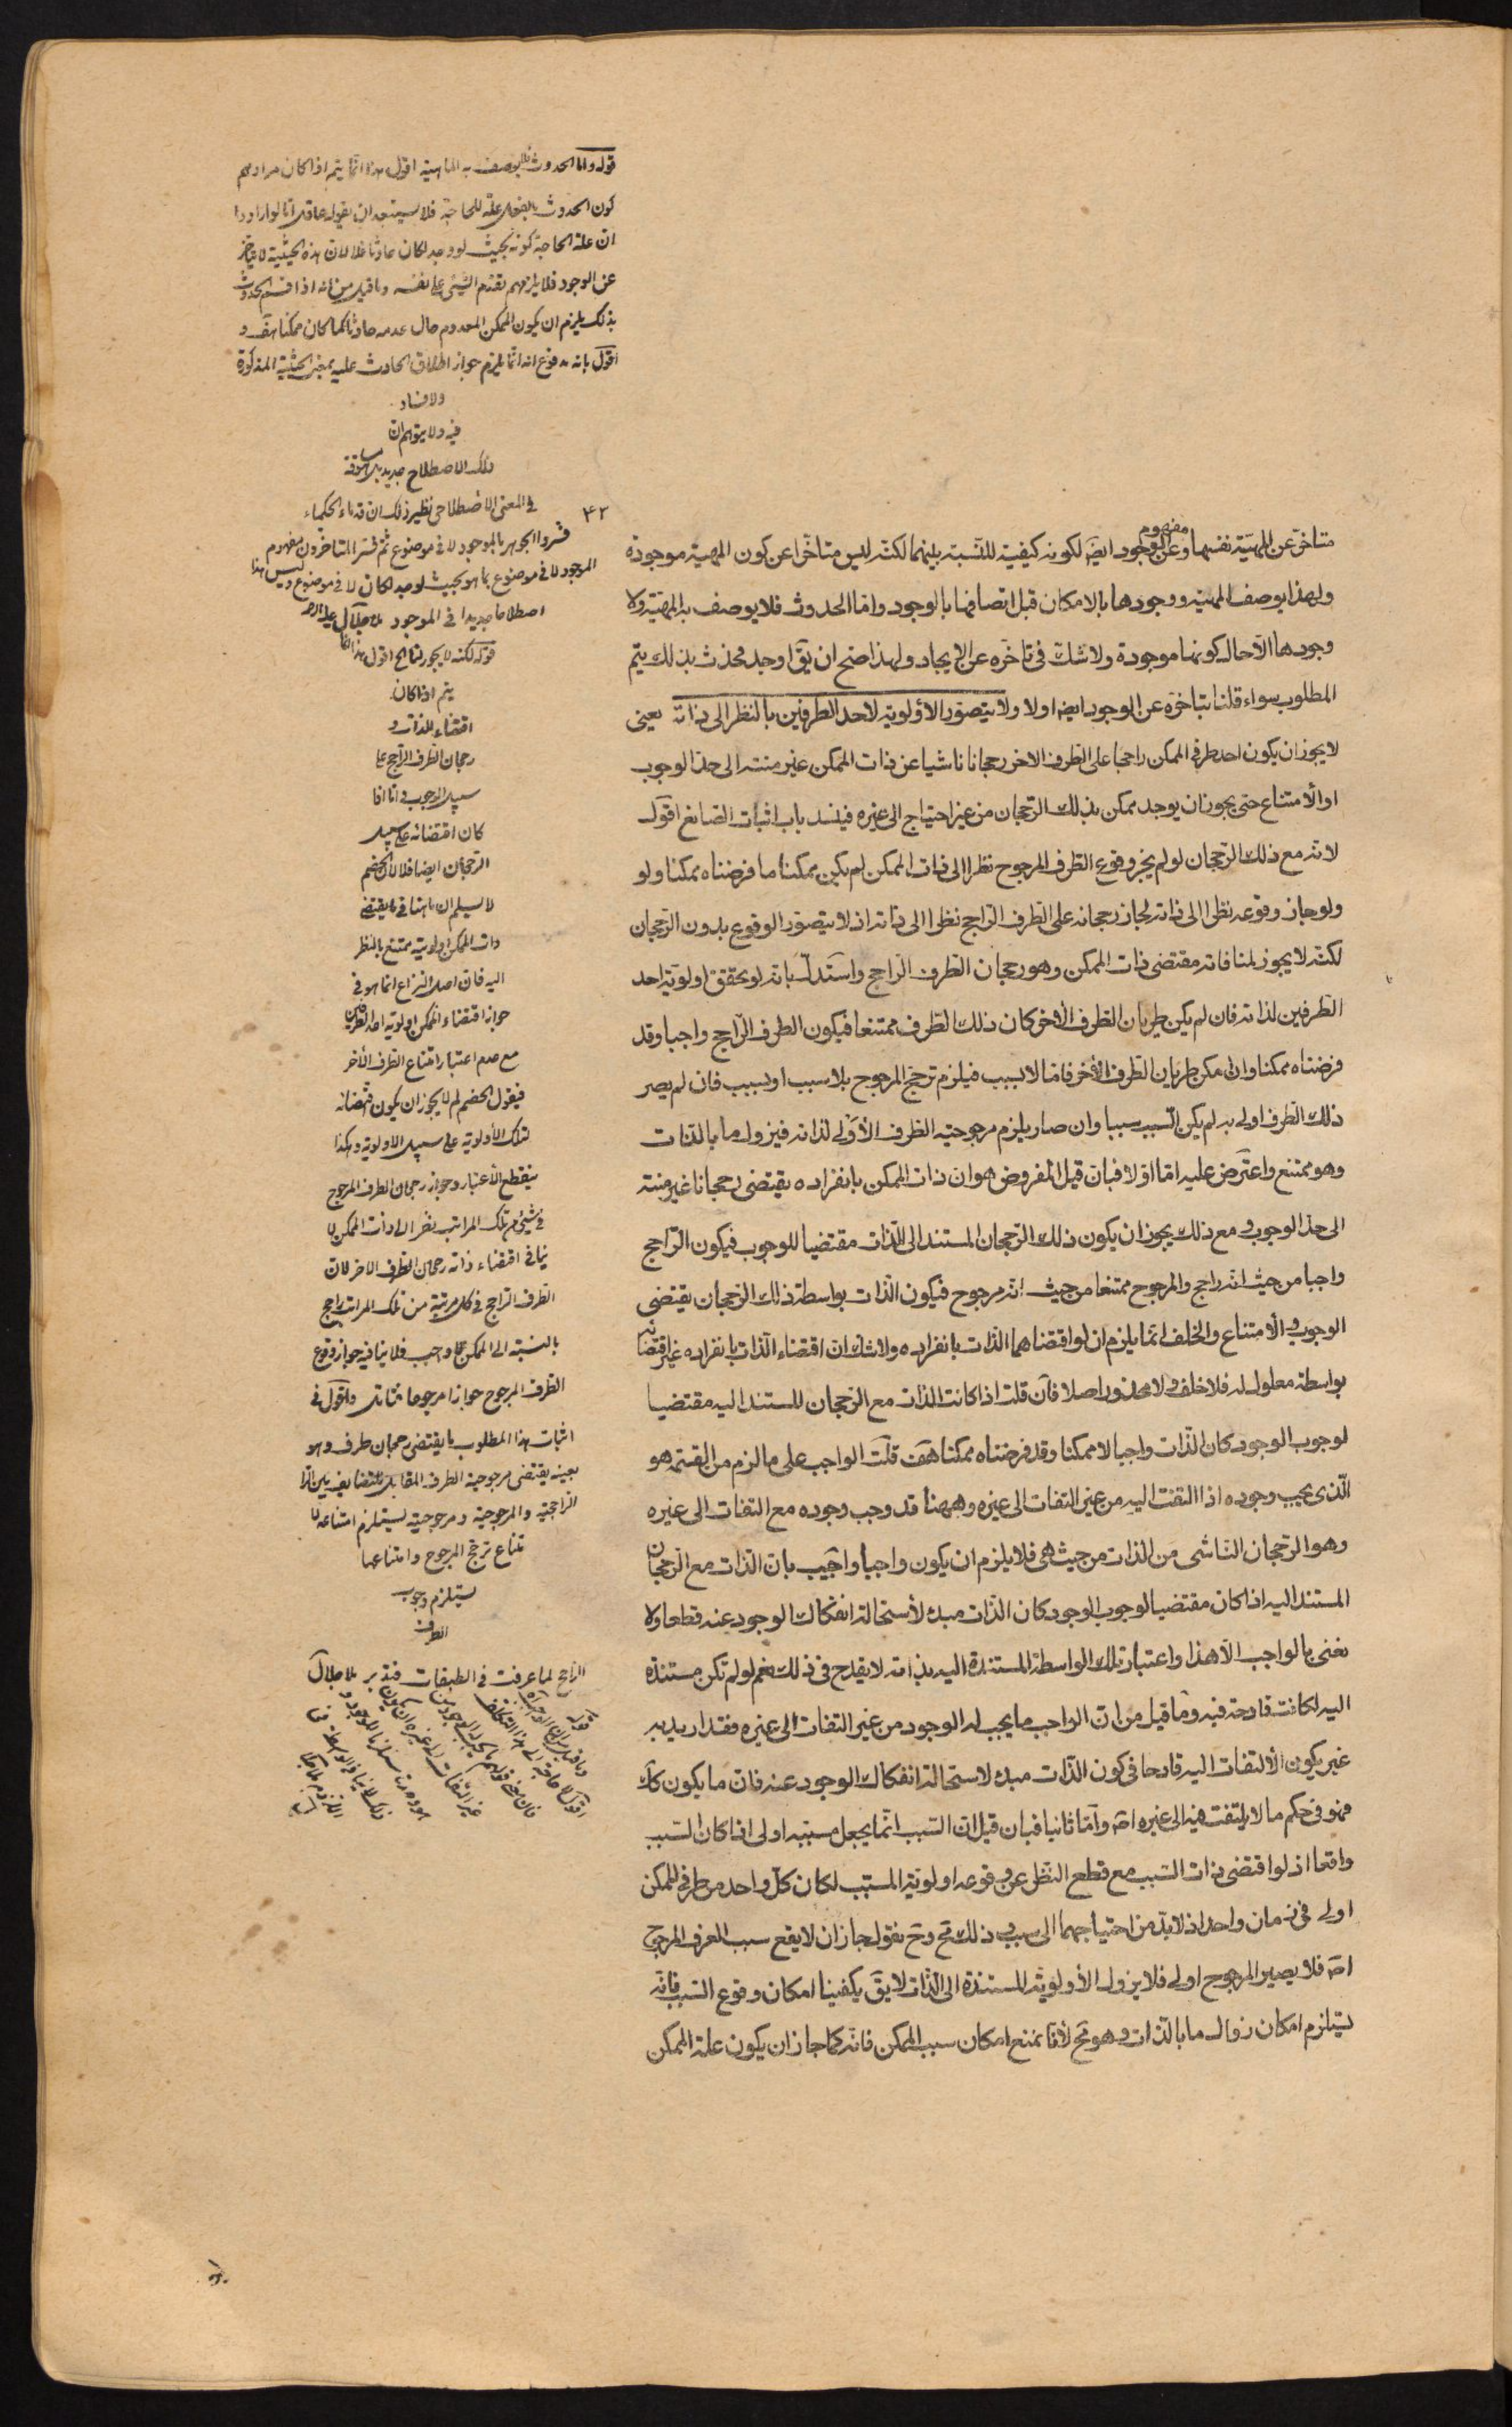 متاخر عن المهية نفسها وعن مفهوم الوجود ايضا لكونه كيفية للنسبة بينهما لكنه ليس متاخرا عن كون المهية موجودة
ولهذا يوصف المهية ووجودها بالامكان قبل اتصافها بالوجود واما الحدوث فلا يوصف به المهية ولا
وجودها الا حال كونها موجودة ولا شك فى تاخره عن الايجاد ولهذا صح ان يق اوجد فحدث بذلك يتم
المطلوب سواء قلنا بتاخره عن الوجود ايضا اولا ولا يتصور الأولوية لاحد الطرفين بالنظر الى ذاته يعنى
لا يجوز ان يكون احد طرفى الممكن راجحا على الطرف الاخر رجحانا ناشيا عن ذات الممكن غير منته الى حد الوجوب
او الأمتناع حتى يجوز ان يوجد ممكن بذلك الرجحان من غير احتياج الى غيره فينسد باب اثبات الصانع اقول
لانه مع ذلك الرجحان لو لم يجز وقوع الطرف المرجوح نظرا الى ذات الممكن لم يكن ممكنا ما فرضناه ممكنا ولو
ولو جاز وقوعه نظرا الى ذاته لجاز رجحانه على الطرف الراجح نظرا الى ذاته اذ لا يتصور الوقوع بدون الرجحان
لكنه لا يجوز لمنافاته مقتضى ذات الممكن وهو رجحان الطرف الراجح واستدل بانه لو تحقق اولوية احد
الطرفين لذاته فان لم يكن طريان الطرف الأخر كان ذلك الطرف ممتنعا فيكون الطرف الراجح واجبا وقد
فرضناه ممكنا وان امكن طريان الطرف الأخر فاما لا بسبب فيلزم ترجح المرجوح بلا سبب او بسبب فان لم يصر
ذلك الطرف اولى به لم يكن السبب سببا وان صار يلزم مرجوحية الطرف الأولى لذاته فيزول ما بالذات
وهو ممتنع واعترض عليه اما اولا فبان قيل المفروض هو ان ذات الممكن بانفراده يقتضى رجحانا غير منته
الى حد الوجوب ومع ذلك يجوز ان يكون ذلك الرجحان المستند الى الذات مقتضيا للوجوب فيكون الراجح
واجبا من حيث انه راجح والمرجوح ممتنعا من حيث انه مرجوح فيكون الذات بواسطة ذلك الرجحان يقتضى
الوجوب والأمتناع والخلف انما يلزم ان لو اقتضاهما الذات بانفراده ولا شك ان اقتضاء الذات بانفراده غير اقتضائه
بواسطة معلول له فلا خلف ولا محذور اصلا فان قلت اذا كانت الذات مع الرجحان المستند اليه مقتضيا
لوجوب الوجود كان الذات واجبا لا ممكنا وقد فرضناه ممكنا هف قلت الواجب على ما لزم من القسمة هو
الذى يجب وجوده اذا التفت اليه من غير التفات الى غيره وههنا قد وجب وجوده مع التفات الى غيره
وهو الرجحان الناشى من الذات من حيث هى فلا يلزم ان يكون واجبا واجيب بان الذات مع الرجحان
المستند اليه اذا كان مقتضيا لوجوب الوجود كان الذات مبدء لأستحالة انفكاك الوجود عنه قطعا ولا
نعنى بالواجب الا هذا واعتبار تلك الواسطة المستندة اليه بذاته لا يقدح فى ذلك نعم لو لم تكن مستندة
اليه لكانت قادحة فيه وما قيل من ان الواجب ما يجب له الوجود من غير التفات الى غيره فقد اريد به
غير يكون الألتفات اليه قادحا فى كون الذات مبدء لاستحالة انفكاك الوجود عنه فان ما يكون كك
فهو فى حكم ما لا يلتفت فيه الى غيره اصه واما ثانيا فبان قيل ان السبب انما يجعل مسببه اولى اذا كان السبب
واقعا اذ لو اقتضى ذات السبب مع قطع النظر عن وقوعه اولوية المسبب لكان كل واحد من طرفى الممكن
اولى فى زمان واحد اذ لابد من احتياجهما الى سبب وذلك مح وح نقول جاز ان لا يقع سبب الطرف المرجوح
اصه فلا يصير المرجوح اولى فلا يزول الأولوية المستندة الى الذات لا يق يكفينا امكان وقوع السبب فانه
يستلزم امكان زوال ما بالذات وهو مح لأنا نمنع امكان سبب الممكن فانه كما جاز ان يكون علة الممكن
قوله واما الحدوث فلا يوصف به الماهية اقول هذا انما يتم اذا كان مرادهم
كون الحدوث بالفعل علة للحاجة فلا يستبعد ان يقوله عاقل اما لو ارادوا
ان علة الحاجة كونه بحيث لو وجد لكان حادثا فلا لان هذه الحيثية لا يتاخر
عن الوجود فلا يلزمهم تقدم الشىء على نفسه وما قيل من انه اذا فسر الحدوث
بذلك يلزم ان يكون الممكن المعدوم حال عدمه حادثا كما كان ممكنا هف و
اقول بانه مدفوع انه انما يلزم جواز اطلاق الحادث عليه بمعنى الحيثية المذكورة
ولا فساد
فيه ولا يتوهم ان
ذلك الاصطلاح جديد بل
فى المعنى الاصطلاحى نظير ذلك ان قدماء الحكماء
۴۲
فسروا الجوهر بالموجود لا فى موضوع ثم فسر المتاخرون مفهوم
الموجود لا فى موضوع بما هو بحيث لو وجد لكان لا فى موضوع وليس هذا
اصطلاحا جديدا فى الموجود ملا جلال عليه الرحمه
قوله لكنه لا يجوز لمنافاته اقول هذا انما
يتم اذا كان
اقتضاء الذات
رجحان الطرف الراجح على
سبيل الوجوب واما اذا
كان اقتضائه على سبيل
الرجحان ايضا فلا لان الخصم
لا يسلم ان ما ينافى ما يقتضى
ذات الممكن اولويته ممتنع بالنظر
اليه فان اصل النزاع انما هو فى
جواز اقتضاء الممكن اولوية احد الطرفين
مع عدم اعتبار امتناع الطرف الأخر
فيقول الخصم لم لا يجوز ان يكون اقتضائه
لتلك الأولوية على سبيل الاولوية وهكذا
ينقطع الأعتبار وجواز رجحان الطرف المرجوح
فى شىء من تلك المراتب نظرا الى ذات الممكن لا
ينافى اقتضاء ذاته رجحان الطرف الاخر لان
الطرف الراجح فى كل مرتبة من تلك المراتب راجح
بالنسبة الى الممكن لا واجب فلا ينافيه جواز وقوع
الطرف المرجوح جوازا مرجوحا فتامل واقول فى
اثبات هذا المطلوب ما يقتضى رجحان طرف وهو
بعينه يقتضى مرجوحية الطرف المقابل للتضايف بين
الراجحية والمرجوحية ومرجوحيته يستلزم امتناعه
لامتناع ترجح المرجوح وامتناعها
يستلزم وجوب
الطرف
الراجح لما عرفت فى الطبقات فتدبر ملا جلال